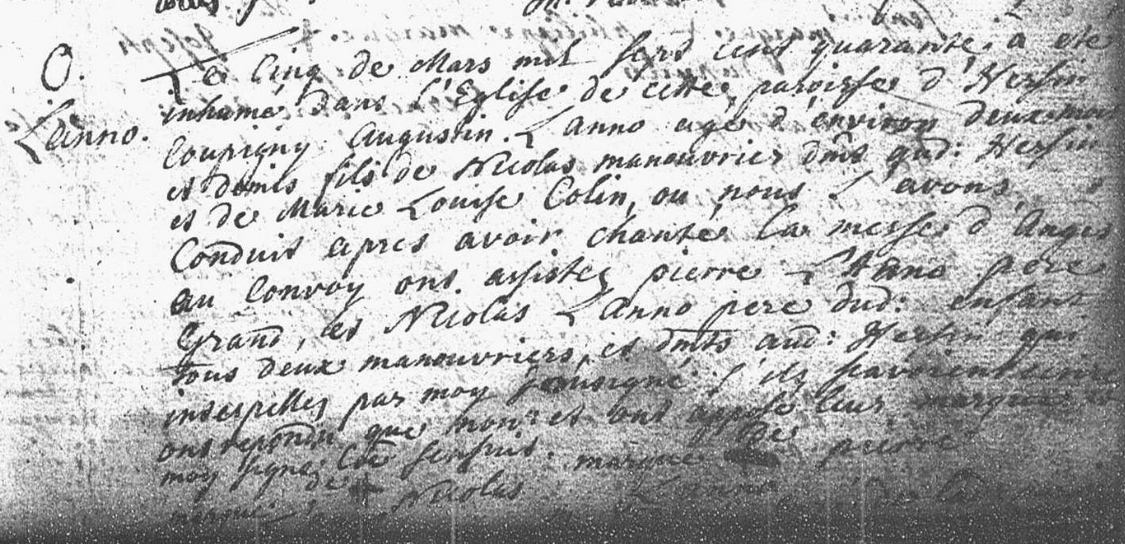 O.
Lanno.
Le Cinq de Mars mil sept cent quarante, a eté
inhumé dans l'Eglise de cette paroisse d'Hersin
Coupigny Augustin Lanno agé d'environ deux mois
et demis fils de Nicolas manouvrier dmt aud: Hersin
et de Marie Louise Colin, ou nous l'avons
Conduit apres avoir chanté la messe d'Anges
au Convoy ont assistez pierre L'anno pere
Grand, et Nicolas Lanno pere dud: enfant
tous deux manouvriers, et dmts aud: Hersin qui
interpellez par moy sousigné s'ils scavoient ecrire
ont repondu que non: et ont apposé leur marque
moy signé marque de pierre
marque de Nicolas Lanno